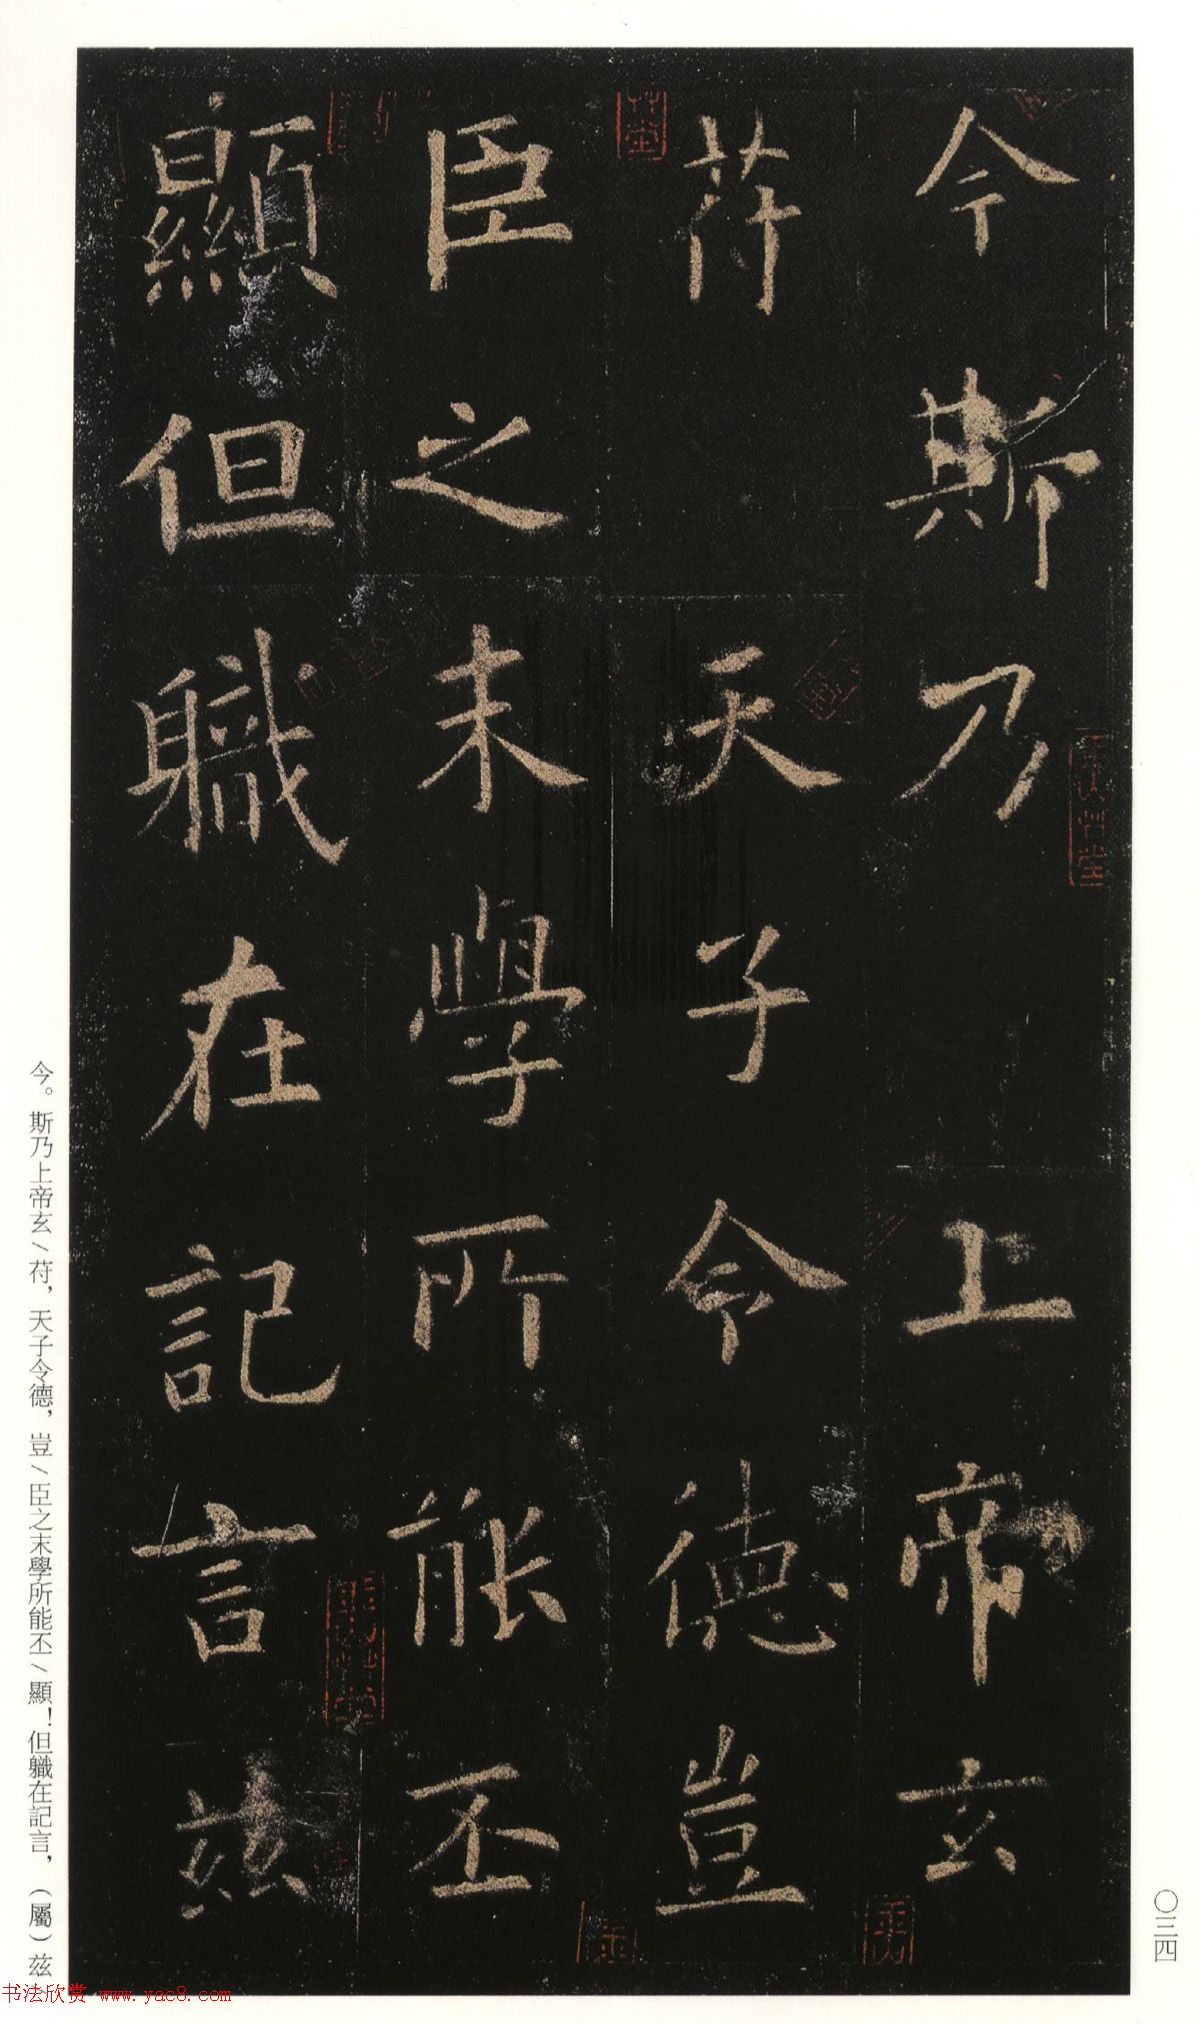 今斯乃 上帝玄
苻 天子令德豈
臣之末學所能丕
顯但軄在記言兹
今。斯乃上帝玄／苻，天子令德，豈／臣之末學所能丕／顯！但軄在記言，（屬）兹
〇三四
书法欣赏 www.yac8.com